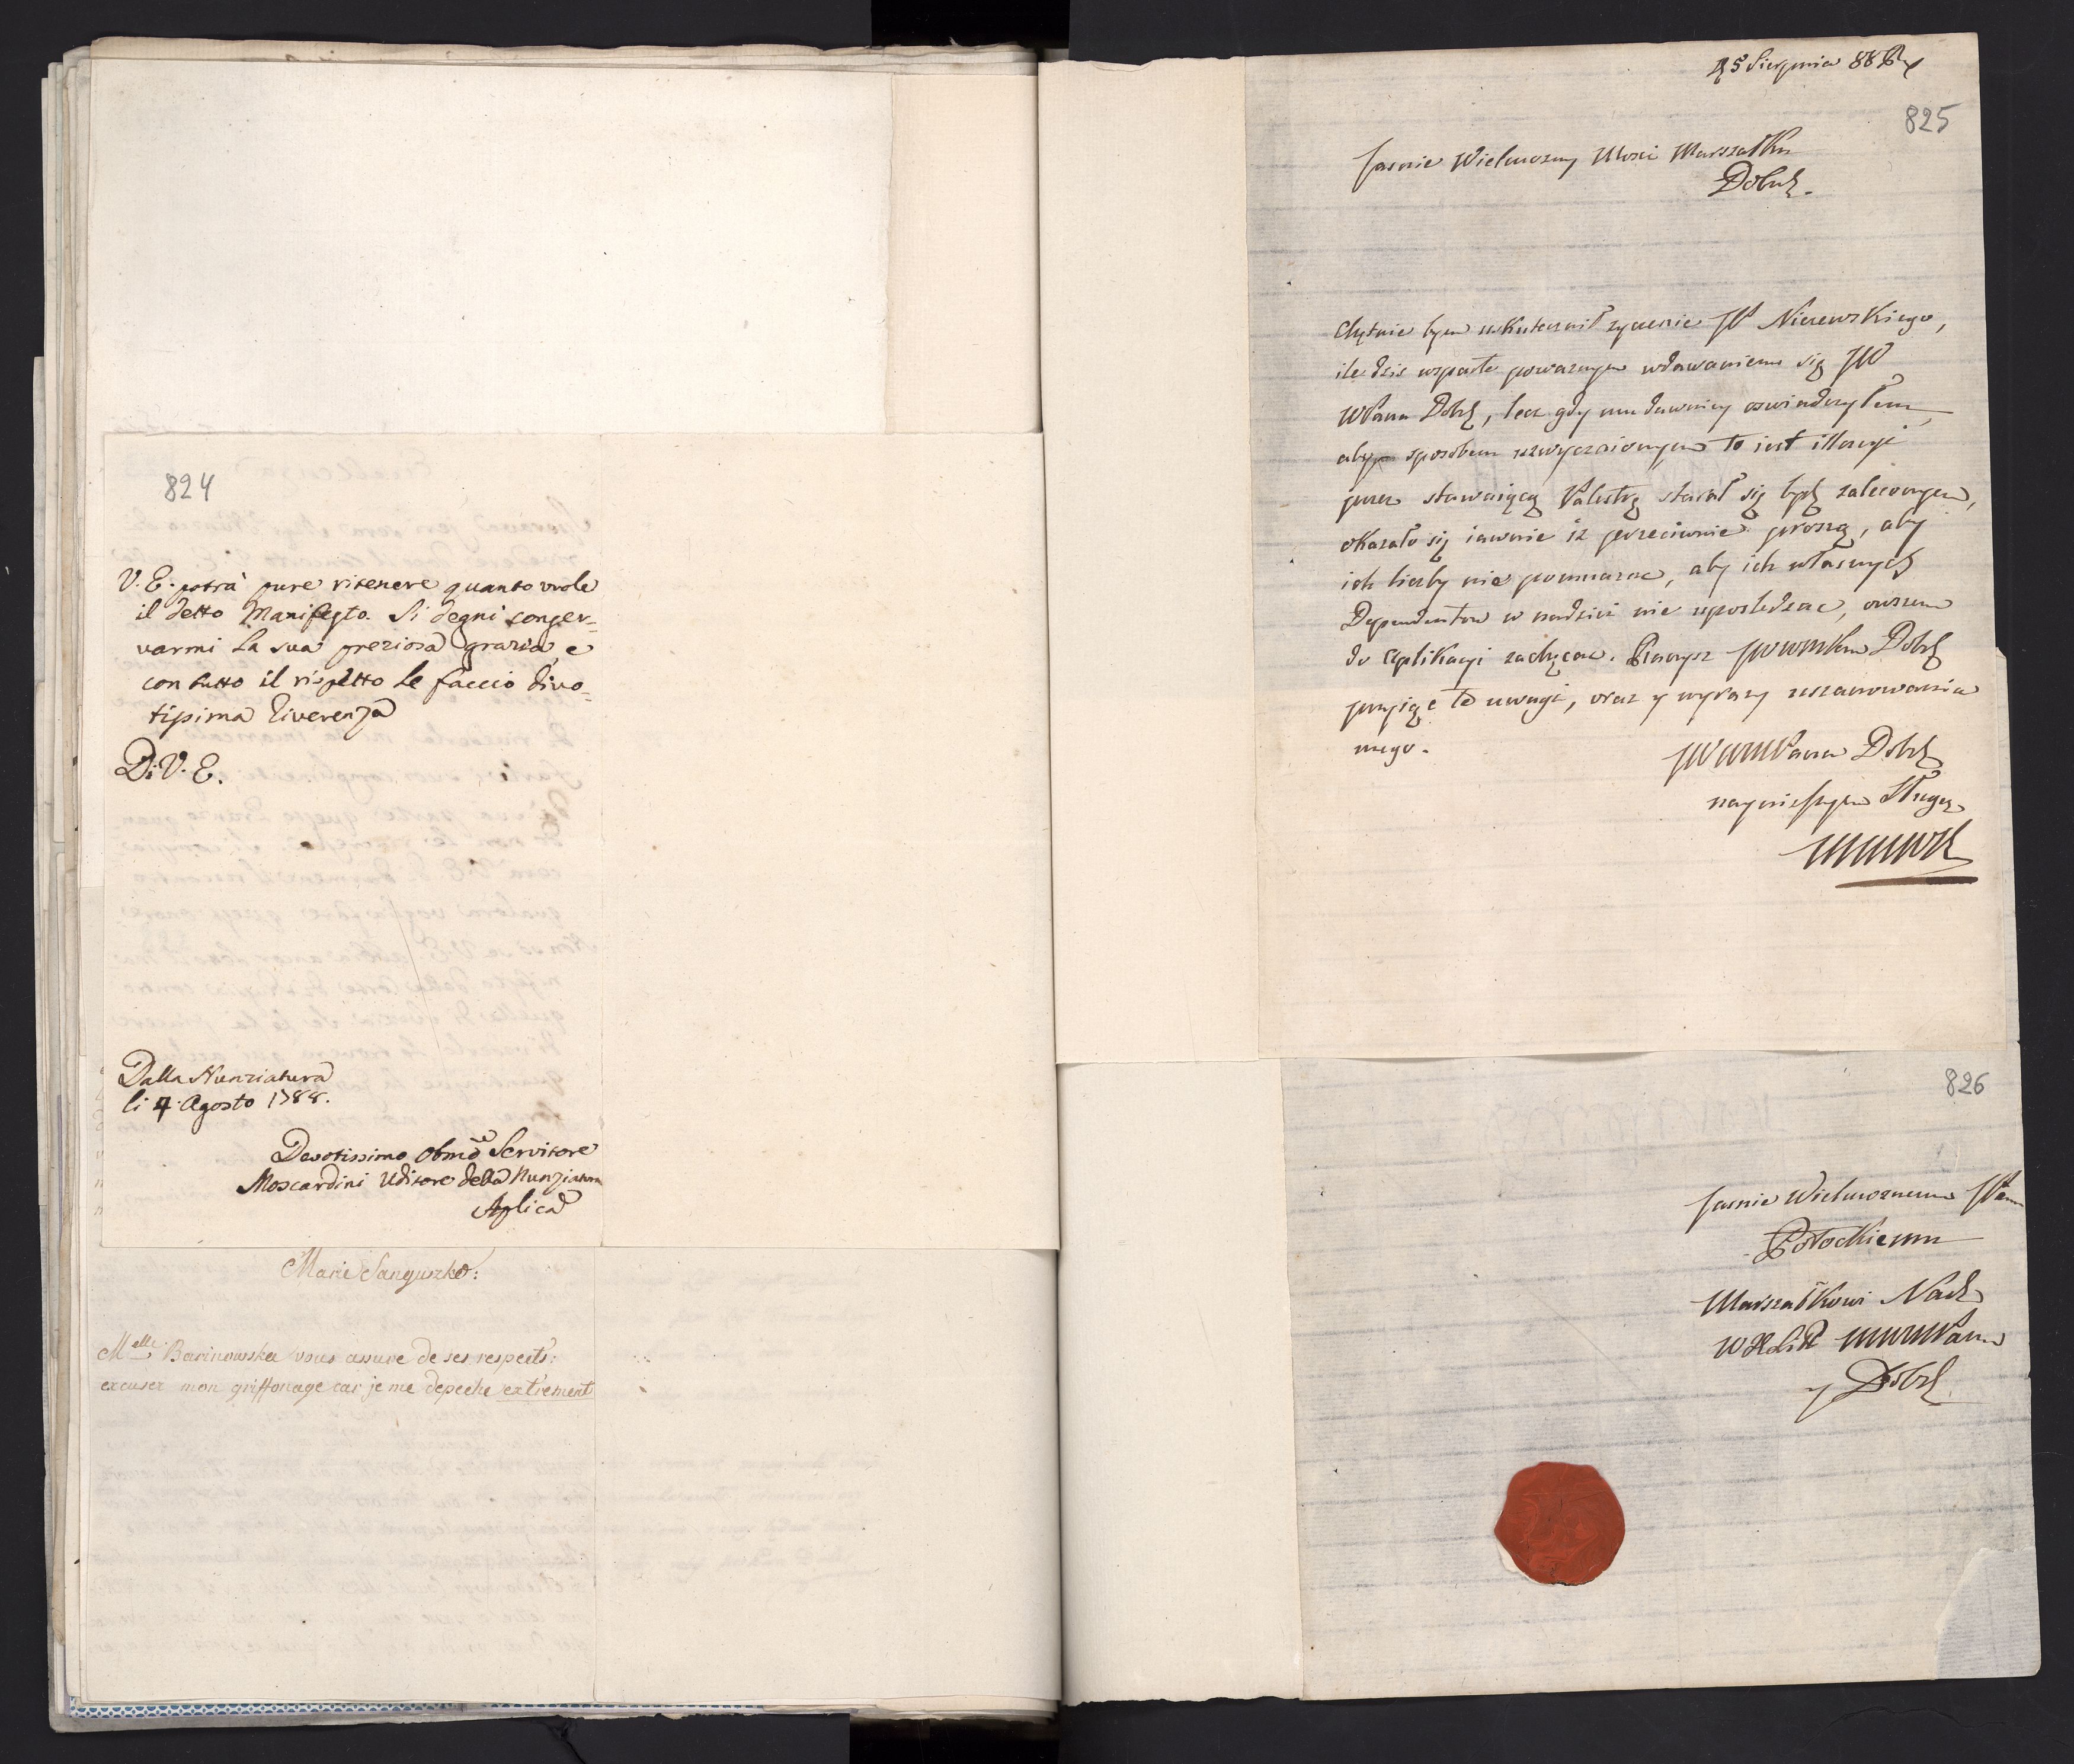 824
V. E. potrà pure ritenere quanto vuole
il detto Manifesto. Si degni conser=
varmi la sua preziosa grazia, e
con tutto il rispetto le faccio divo=
tissima riverenza
Di V. E.
Dalla Nunziatura
li 4. Agosto 1788.
Devotissimo Obmo Servitore
Moscardini Uditore della Nunziatura
Aplica
Marie Sanguszko:
Melle Barinowska vous assure de ses respects:
excuser mon griffonage car je me depeche extrement
25 Sierpnia 88
825
Jasnie Wielmozny Mosci Marszałku
Dobrd.
Chętnie bym uskutecznił zyczenie JP Niezewskiego,
ile dzis wsparte powaznym wdawaniem się JW
WPana Dobrd, lecz gdy mu dawniey oswiadczyłem,
aby sposobem zwyczaionym to iest
przez stawaiącą Palestrę starał się bydz zaleconym,
okazało się iawnie iz przeciwnie proszą, aby
ich liczby nie pomnazac, aby ich własnych
Dependentow w nadziei nie uposledzac, owszem
do Aplikacyi zachęcac. Raczysz Dobrd
przyiąc te uwagi, oraz y wyrazy uszanowania
mego.
JWWMWPana Dobrd
nayniszym Sługą
826
Jasnie Wielmoznemu JPanu
Potockiemu
Marszałkowi Nadr
W X Litt WMMWPanu
y Dobrd